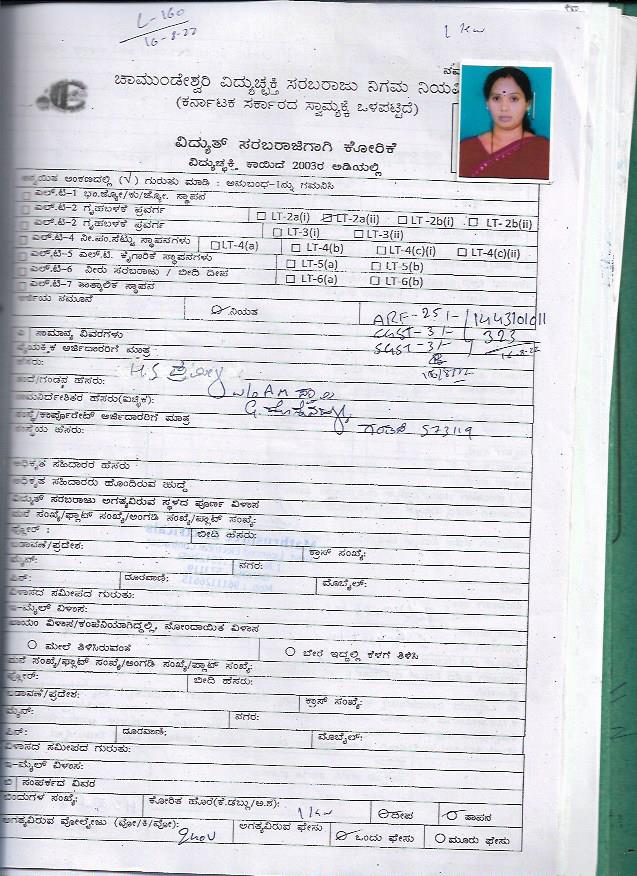 L-160
16-8-22
1 Kw
ಚಾಮುಂಡೇಶ್ವರಿ ವಿದ್ಯುಚ್ಛಕ್ತಿ ಸರಬರಾಜು ನಿಗಮ ನಿಯ
(ಕರ್ನಾಟಕ ಸರ್ಕಾರದ ಸ್ವಾಮ್ಯಕ್ಕೆ ಒಳಪಟ್ಟಿದೆ)
ವಿದ್ಯುತ್ ಸರಬರಾಜಿಗಾಗಿ ಕೋರಿಕೆ
ವಿದ್ಯುಚ್ಛಕ್ತಿ ಕಾಯಿದೆ 2003ರ ಅಡಿಯಲ್ಲಿ
ಅಂಕಣದಲ್ಲಿ (√) ಗುರುತು ಮಾಡಿ : ಅನುಬಂಧ-1ನ್ನು ಗಮನಿಸಿ
ಎಲ್.ಟಿ-1 ಭಾ.ಜ್ಯೋ/ಕು/ಜ್ಯೋ. ಸ್ಥಾಪನ
ಎಲ್.ಟಿ-2 ಗೃಹಬಳಕೆ ಪ್ರವರ್ಗ
ಎಲ್.ಟಿ-2 ಗೃಹಬಳಕೆ ಪ್ರವರ್ಗ LT-2a(i) LT-2a(ii) LT-2b(i) LT-2b(ii)
LT-3(i) LT-3(ii)
ಎಲ್.ಟಿ-4 ನೀ.ಪಂ.ಸೆಟ್ಟು ಸ್ಥಾಪನಗಳು LT-4(a) LT-4(b) LT-4(c)(i) LT-4(c)(ii)
ಎಲ್.ಟಿ-5 ಎಲ್.ಟಿ. ಕೈಗಾರಿಕೆ ಸ್ಥಾಪನಗಳು LT-5(a) LT-5(b)
ಎಲ್.ಟಿ-6 ನೀರು ಸರಬರಾಜು / ಬೀದಿ ದೀಪ LT-6(a) LT-6(b)
ಎಲ್.ಟಿ-7 ತಾತ್ಕಾಲಿಕ ಸ್ಥಾಪನ
ಅರ್ಜಿಯ ನಮೂನೆ
ನಿಯತ
ARF-25/- 1443101011
CGST-3/- 323
SGST-3/- 16-8-22
ಎ ಸಾಮಾನ್ಯ ವಿವರಗಳು
ವೈಯಕ್ತಿಕ ಅರ್ಜಿದಾರರಿಗೆ ಮಾತ್ರ
ಹೆಸರು: H.S
ತಂದೆ/ಗಂಡನ ಹೆಸರು: w/o
ನಾಮನಿರ್ದೇಶಿತರ ಹೆಸರು(ಐಚ್ಛಿಕ):
ಸಂಸ್ಥೆ/ಕಾರ್ಪೊರೇಟ್ ಅರ್ಜಿದಾರರಿಗೆ ಮಾತ್ರ
ಸಂಸ್ಥೆಯ ಹೆಸರು: 573119
ಅಧಿಕೃತ ಸಹಿದಾರರ ಹೆಸರು
ಅಧಿಕೃತ ಸಹಿದಾರರು ಹೊಂದಿರುವ ಹುದ್ದೆ
ವಿದ್ಯುತ್ ಸರಬರಾಜು ಅಗತ್ಯವಿರುವ ಸ್ಥಳದ ಪೂರ್ಣ ವಿಳಾಸ
ಮನೆ ಸಂಖ್ಯೆ/ಫ್ಲಾಟ್ ಸಂಖ್ಯೆ/ಅಂಗಡಿ ಸಂಖ್ಯೆ/ಪ್ಲಾಟ್ ಸಂಖ್ಯೆ:
ಫ್ಲೋರ್ : ಬೀದಿ ಹೆಸರು:
ಬಡಾವಣೆ/ಪ್ರದೇಶ: ಕ್ರಾಸ್ ಸಂಖ್ಯೆ:
ಮೈನ್: ನಗರ:
ಪಿನ್: ದೂರವಾಣಿ: ಮೊಬೈಲ್:
ವಿಳಾಸದ ಸಮೀಪದ ಗುರುತು:
ಇ-ಮೈಲ್ ವಿಳಾಸ:
ಖಾಯಂ ವಿಳಾಸ/ಕಂಪನಿಯಾಗಿದ್ದಲ್ಲಿ, ನೋಂದಾಯಿತ ವಿಳಾಸ
ಮೇಲೆ ತಿಳಿಸಿರುವಂತೆ ಬೇರೆ ಇದ್ದಲ್ಲಿ ಕೆಳಗೆ ತಿಳಿಸಿ
ಮನೆ ಸಂಖ್ಯೆ/ಫ್ಲಾಟ್ ಸಂಖ್ಯೆ/ಅಂಗಡಿ ಸಂಖ್ಯೆ/ಪ್ಲಾಟ್ ಸಂಖ್ಯೆ:
ಫ್ಲೋರ್: ಬೀದಿ ಹೆಸರು:
ಬಡಾವಣೆ/ಪ್ರದೇಶ: ಕ್ರಾಸ್ ಸಂಖ್ಯೆ:
ಮೈನ್: ನಗರ:
ಪಿನ್: ದೂರವಾಣಿ: ಮೊಬೈಲ್:
ವಿಳಾಸದ ಸಮೀಪದ ಗುರುತು:
ಇ-ಮೈಲ್ ವಿಳಾಸ:
ಬಿ ಸಂಪರ್ಕದ ವಿವರ
ಬಿಂದುಗಳ ಸಂಖ್ಯೆ: ಕೋರಿತ ಹೊರೆ(ಕೆ.ಡಬ್ಲು/ಅ.ಶ): 1 Kw ದೀಪ ತಾಪನ
ಅಗತ್ಯವಿರುವ ವೋಲ್ಟೇಜು (ವೋ/ಕಿ/ವೋ): 240V ಅಗತ್ಯವಿರುವ ಫೇಸು ಒಂದು ಫೇಸು ಮೂರು ಫೇಸು